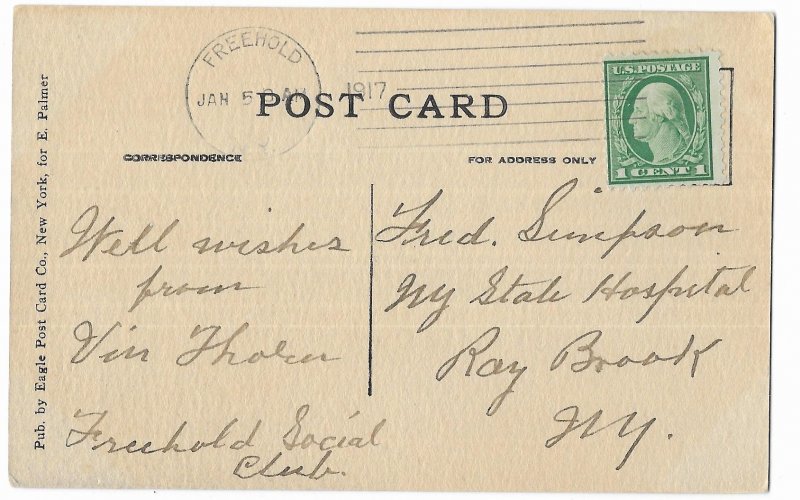 FREEHOLD
JAN 5
1917
U.S. POSTAGE
1 CENT 1
POST CARD
CORRESPONDENCE
FOR ADDRESS ONLY
Pub. by Eagle Post Card Co., New York, for E. Palmer
Well wishes
from
Vin Thorn
Freehold Social
Club.
Fred. Simpson
Ny State Hospital
Ray Brook
Ny.